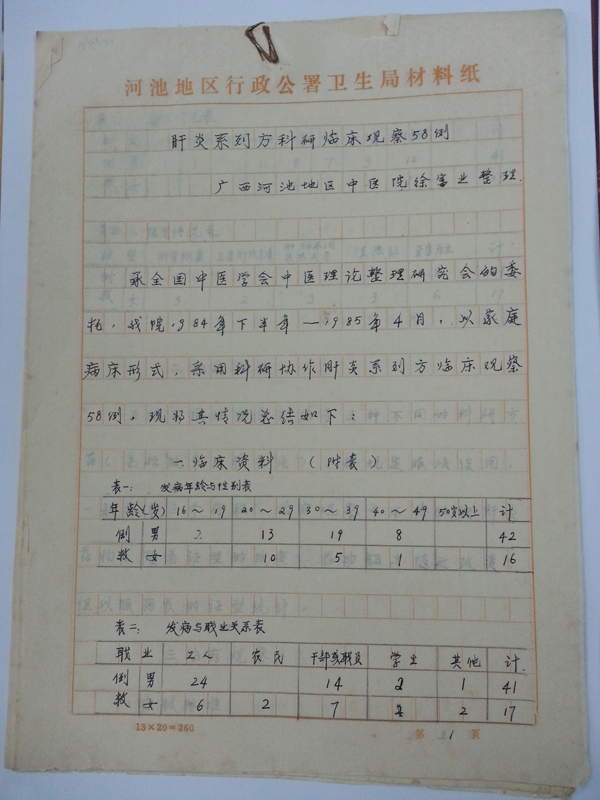 河池地区行政公署卫生局材料纸
肝炎系列方科研临床观察58例
广西河池地区中医院徐富业整理.
承全国中医学会中医理论整理研究会的委
托，我院1984年下半年—1985年4月，以家庭
病床形式，采用科研协作肝炎系列方临床观察
58例，现将其情况总结如下：
一、临床资料（附表）
表一： 发病年龄与性别表
年龄(岁) 16～19 20～29 30～39 40～49 50岁以上 计
例 男 2 13 19 8 42
数 女 10 5 1 16
表二： 发病与职业关系表
职业 工人 农民 干部或职员 学生 其他 计
例 男 24 14 2 1 41
数 女 6 2 7 2 17
13×20=260
第 1 页